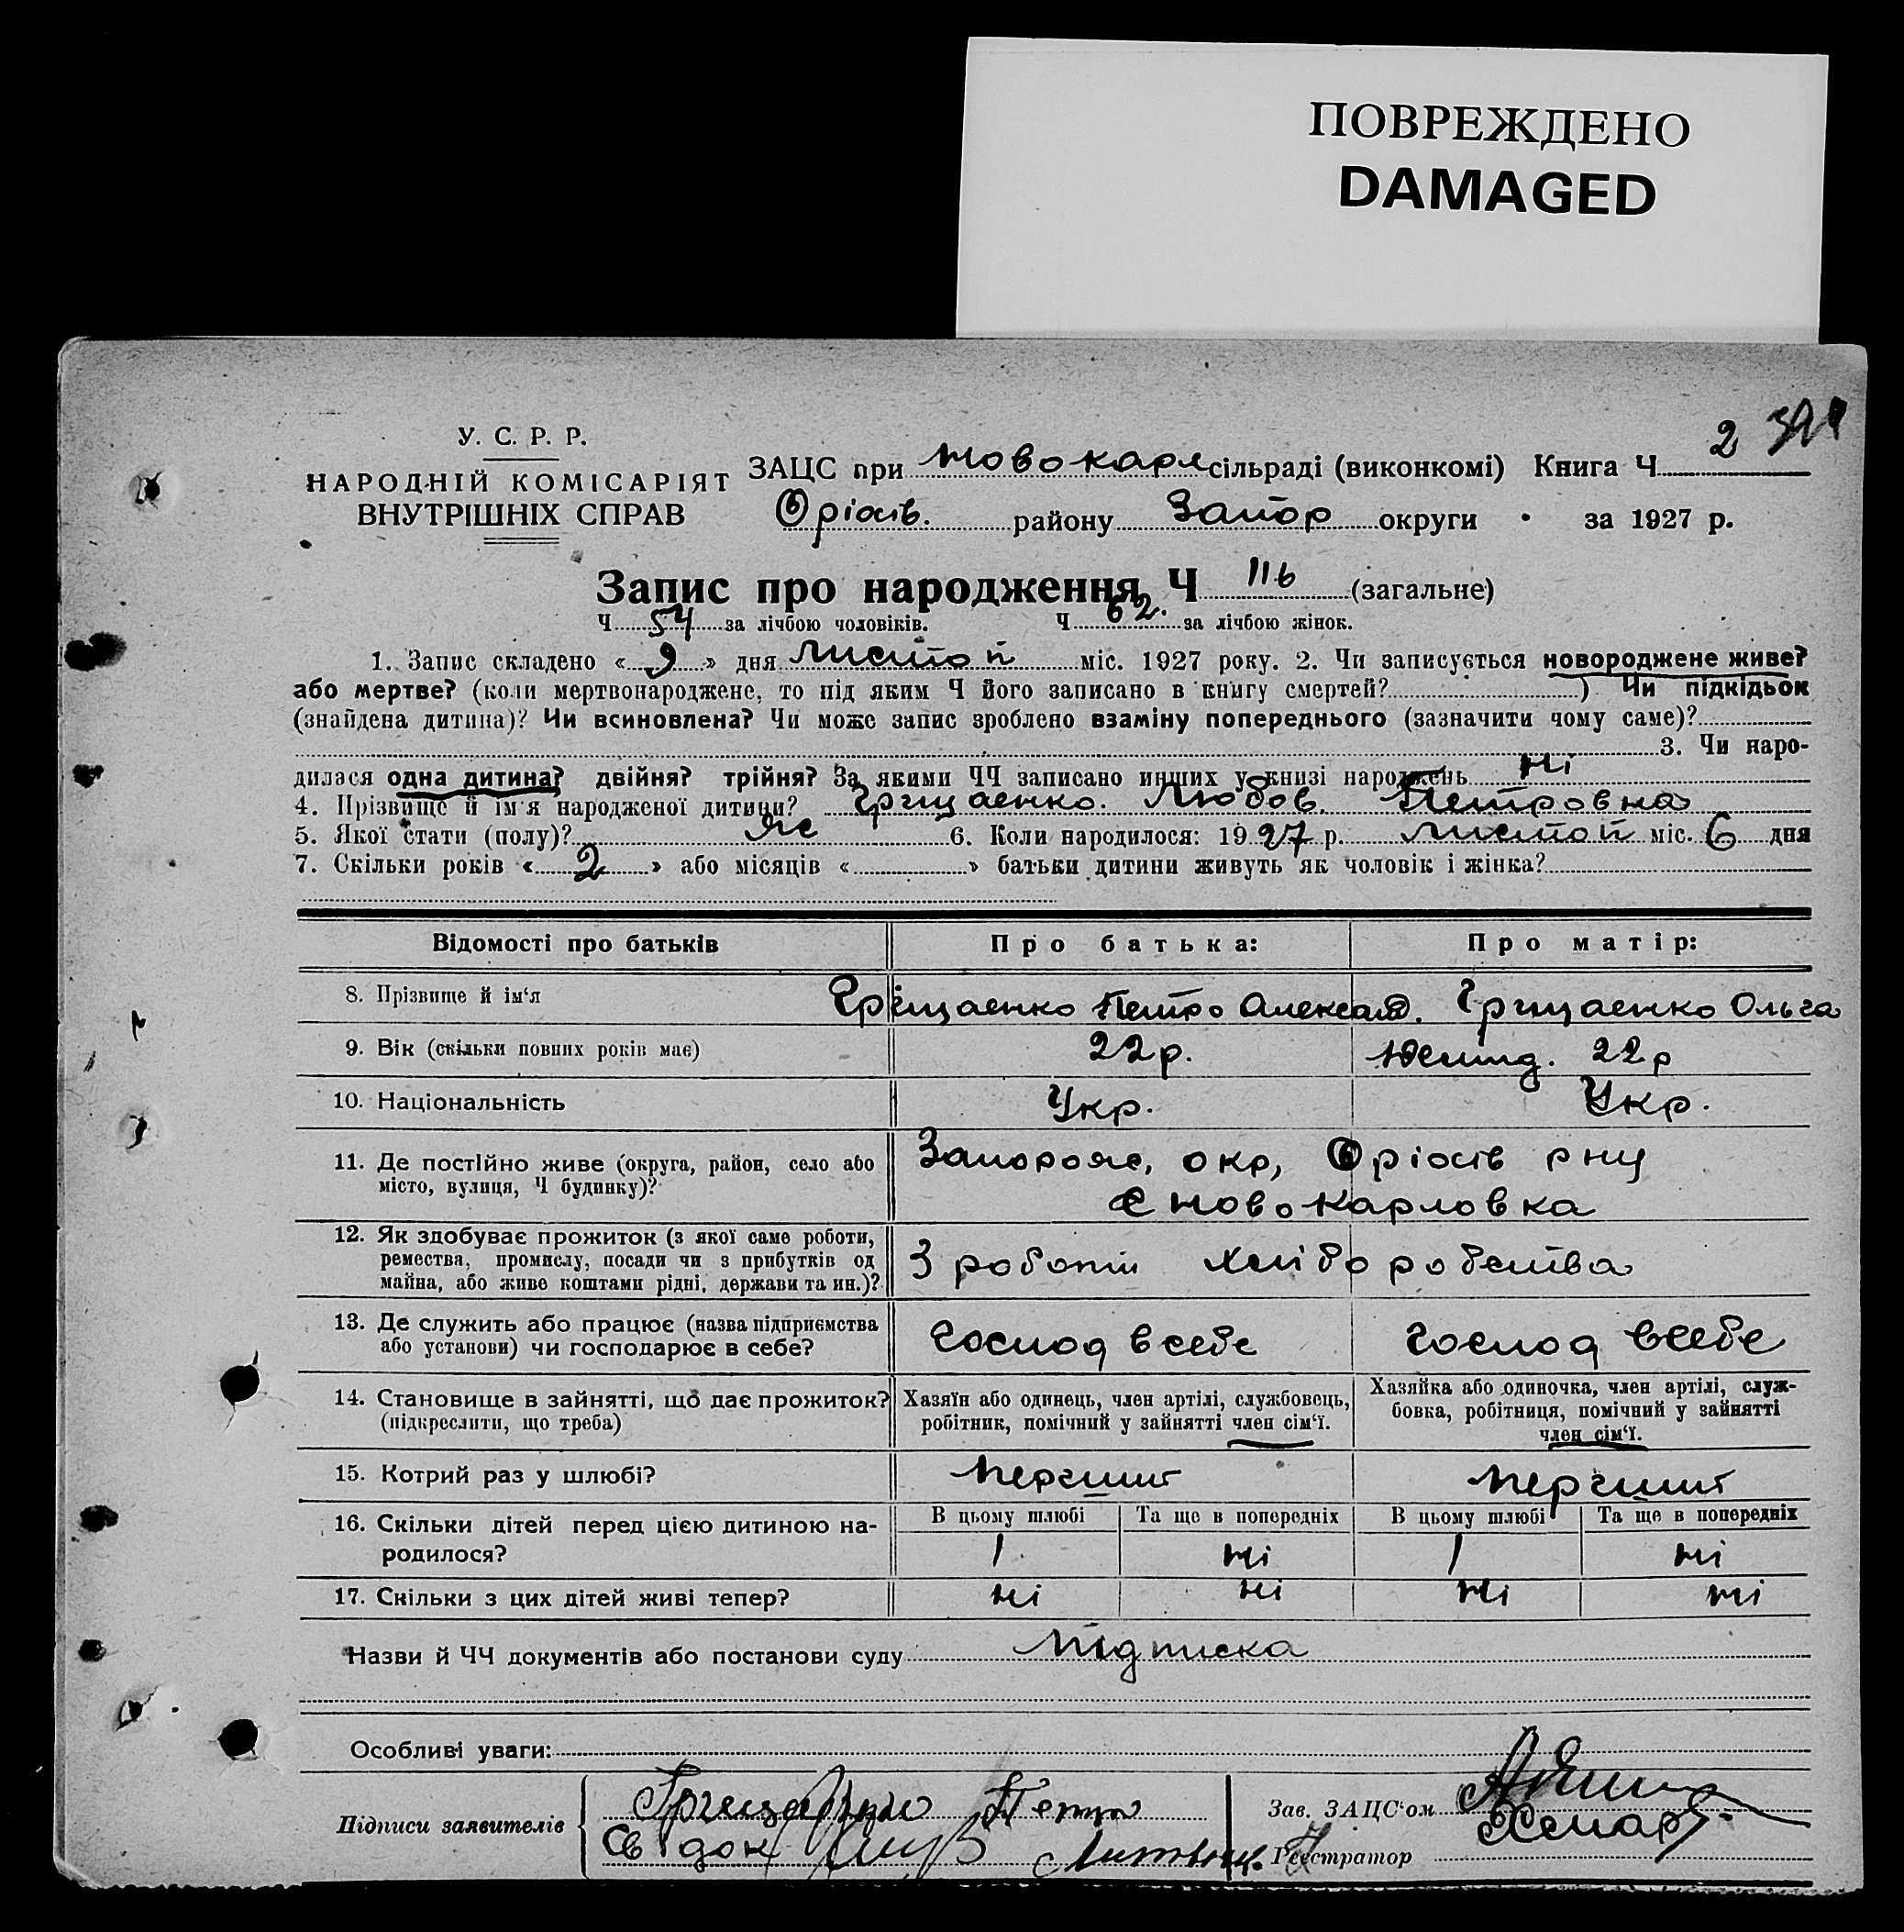 ПОВРЕЖДЕНО
DAMAGED
2
У. С. Р. Р.
НАРОДНІЙ КОМІСАРІЯТ
ВНУТРІШНІХ СПРАВ
ЗАЦС при Новокарл сільраді (виконкомі) Книга Ч
Оріхів. району Запор округи за 1927 р.
Запис про народження Ч 116 (загальне)
Ч 54 за лічбою чоловіків. Ч 62. за лічбою жінок.
1. Запис складено « 9 » дня листоп міс. 1927 року. 2. Чи записується новороджене живе?
або мертве? (коли мертвонароджене, то під яким Ч його записано в книгу смертей? ) Чи підкідьок
(знайдена дитина)? Чи всиновлена? Чи може запис зроблено взаміну попереднього (зазначити чому саме)?
3. Чи наро-
дилася одна дитина? двійня? трійня? За якими ЧЧ записано инших у книзі народжень Ні
4. Прізвище й ім'я народженої дитини? Грищаенко. Любов. Петровна
5. Якої стати (полу)? ж 6. Коли народилося: 1927 р. листоп міс. 6 дня
7. Скільки років « 2 » або місяців « » батьки дитини живуть як чоловік і жінка?
Відомості про батьків Про батька: Про матір:
8. Прізвище й ім'я Грищаенко Петро Александ. Грищаенко Ольга
9. Вік (скільки повних років має) 22 р. 22 р
10. Національність Укр. Укр.
11. Де постійно живе (округа, район, село або Запорож, окр, Оріхів
місто, вулиця, Ч будинку)? с Новокарловка
12. Як здобуває прожиток (з якої саме роботи,
ремества, промислу, посади чи з прибутків од З роботи хліборобства
майна, або живе коштами рідні, держави та ин.)?
13. Де служить або працює (назва підприємства
або установи) чи господарює в себе? Господ в себе Господ в себе
14. Становище в зайнятті, що дає прожиток? Хазяїн або одинець, член артілі, службовець, Хазяйка або одиночка, член артілі, служ-
(підкреслити, що треба) робітник, помічний у зайнятті член сім'ї. бовка, робітниця, помічний у зайнятті
член сім'ї.
15. Котрий раз у шлюбі? Перший Перший
В цьому шлюбі Та ще в попередніх В цьому шлюбі Та ще в попередніх
16. Скільки дітей перед цією дитиною на-
родилося? 1 ні 1 ні
17. Скільки з цих дітей живі тепер? ні ні ні ні
Назви й ЧЧ документів або постанови суду Підписка
Особливі уваги:
Підписи заявителів Петро Зав. ЗАЦС'ом
Свідок Реєстратор